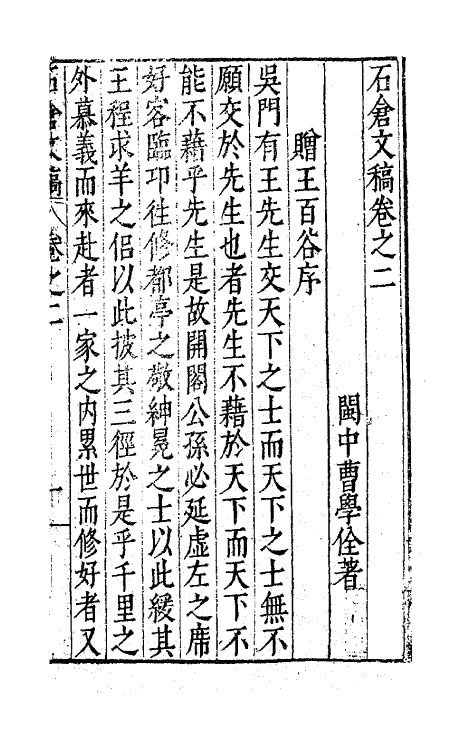 石倉文稿卷之二
閩中曹學佺著
贈王百谷序
吳門有王先生交天下之士而天下之士無不
願交於先生也者先生不藉於天下而天下不
能不藉乎先生是故開閣公孫必延虛左之席
好客臨卭徃修都亭之敬紳冕之士以此緩其
王程求羊之侣以此披其三徑於是乎千里之
外慕義而來赴者一家之内累世而修好者又
石倉文稿 卷之二 一